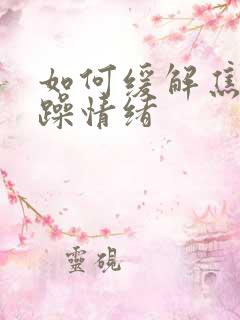 如何缓解焦
躁情绪
靈硯